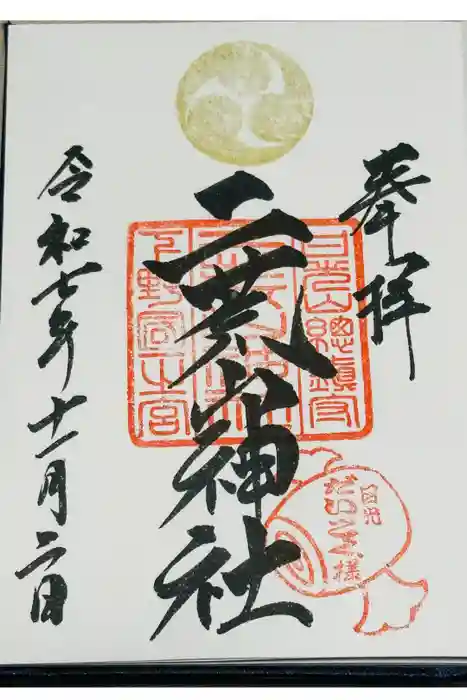 奉拝
日光山総鎮守
二荒山神社
下野国一宮
日光
だいこく様
令和七年十一月二日